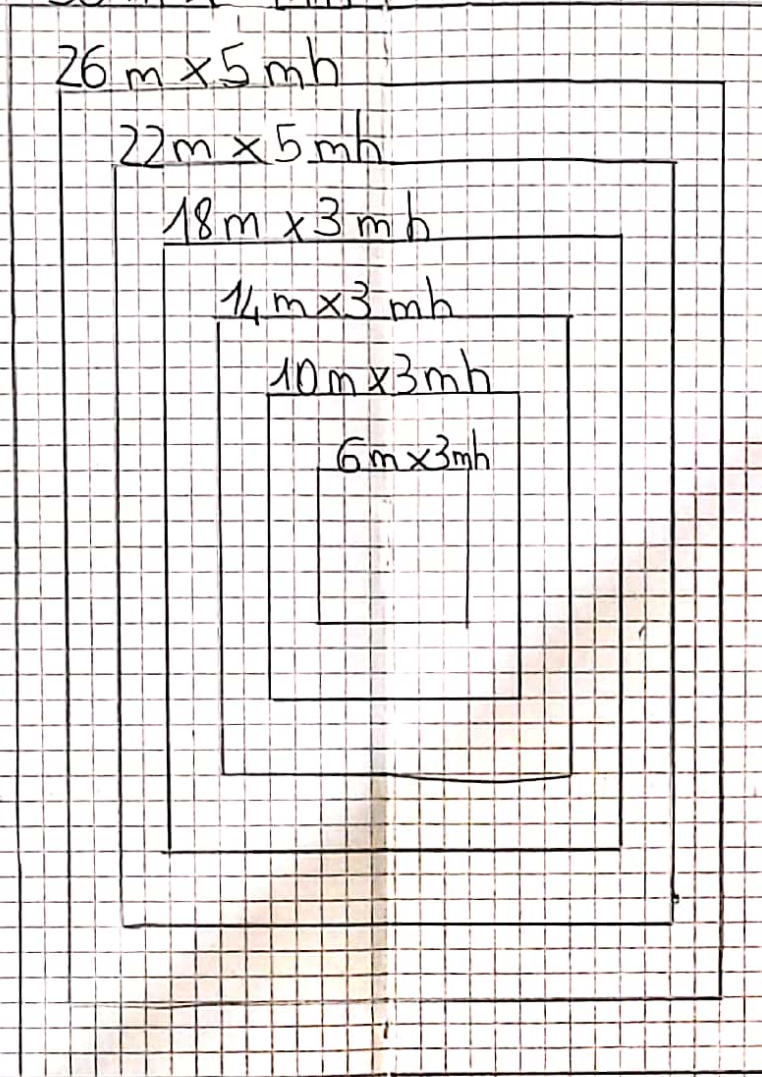 26 m x 5 mh
22m x 5 mh
18m x 3 mh
14m x 3 mh
10m x 3mh
6m x 3mh